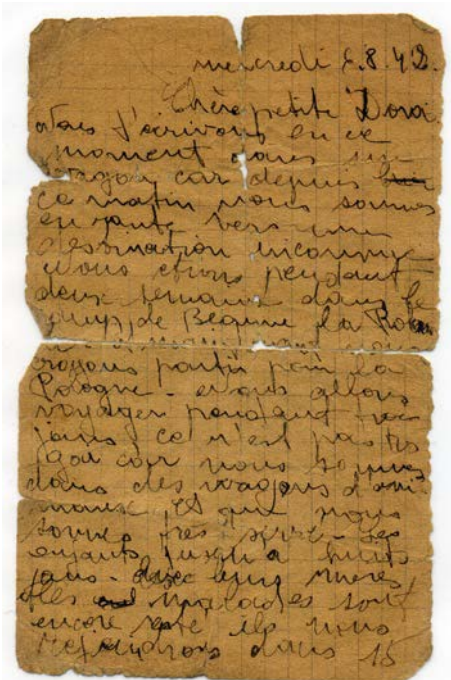 mercredi 5.8.42.
Chère petite Dora
Nous t'écrivons en ce
moment dans un
wagon car depuis
ce matin nous sommes
en route vers une
destination inconnue
Nous étions pendant
deux semaine dans le
camp de Beaune la Rolan
et maintenant nous
croyons partir pour la
Pologne - nous allons
voyager pendant trois
jours ce n'est pas très
gai car nous sommes
dans des wagons d'ani-
maux, et que nous
sommes très serré. Les
enfants jusqu'a huits
ans - avec leurs mères
les malades sont
encore resté ils nous
rejoindrons dans 15